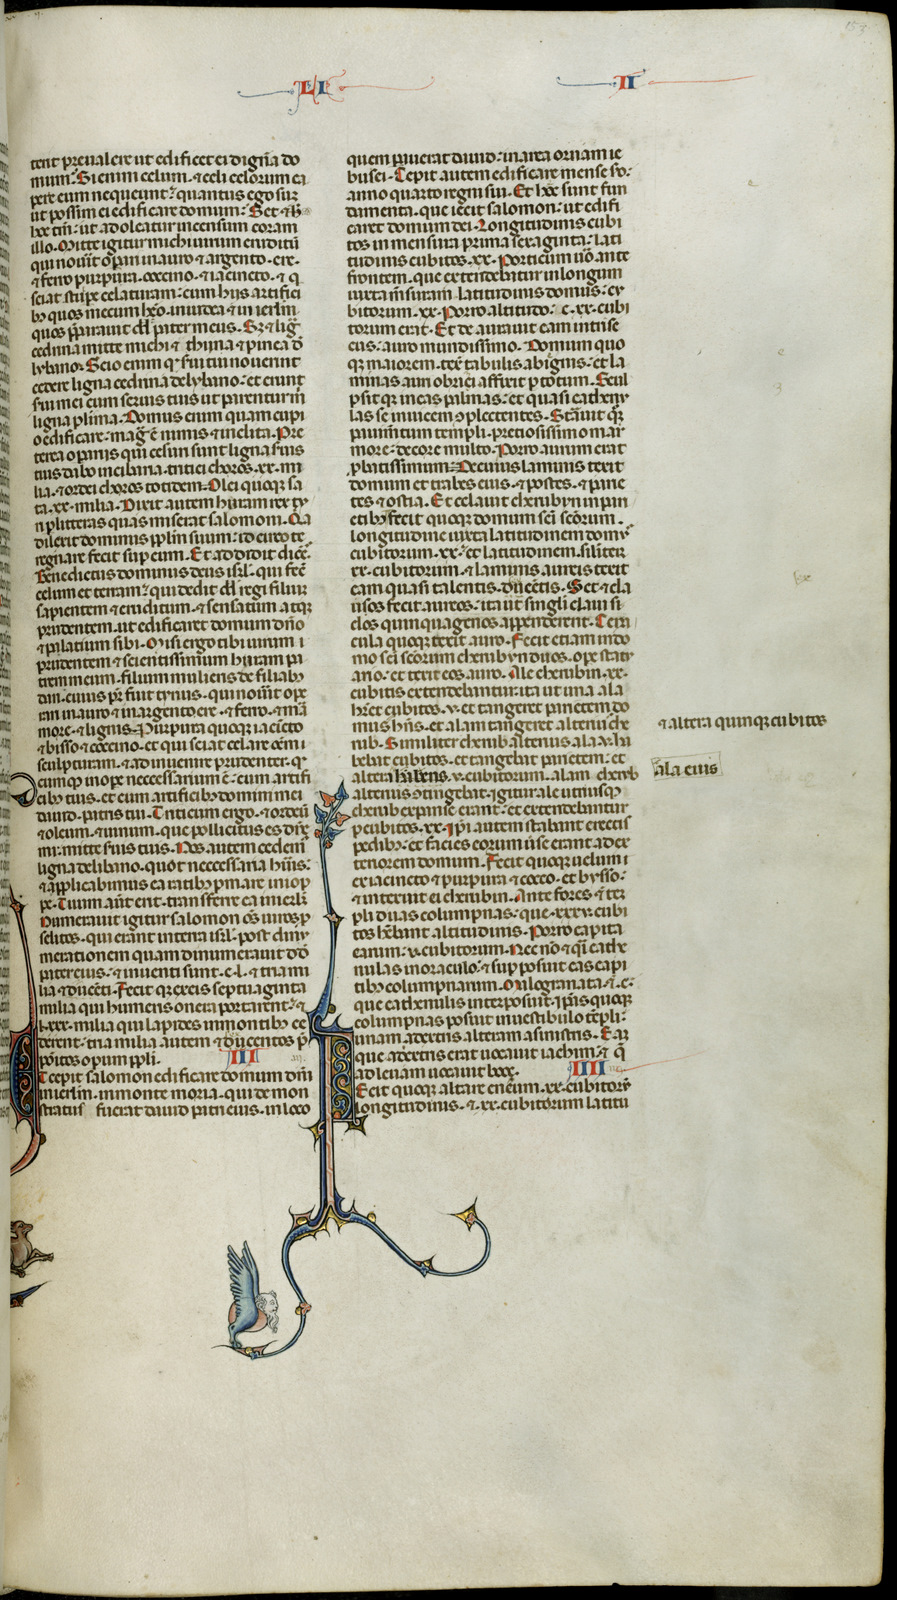 LI II
153
tent prevalere ut edificet ei dignã do
mum. Si enim celum. et celi celorum ca
pere eum nequeunt. quantus ego sum
ut possim ei edificare domum. Set ad
hoc tm̃. ut adoleatur incensum coram
illo. Mitte igitur michi virum eruditũ
qui noverit opari in auro et argento. ere.
et ferro purpura. coccino. et iacincto. et q̃
sciat sculpe celaturam. cum hijs artifici
bȝ quos mecum habeo in iudea et in ierl̃m
quos p̃paravit dd̃ pater meus. Sȝ et lig
cedrina mitte michi et thyina et pinea d̃
lybano. Scio enim qȝ sui tui noverint
cedere ligna cedrina de lybano. et erunt
sui mei cum servis tuis ut parentur m̃
ligna plima. Domus enim quam cupi
o edificare. mag ẽ nimis et inclita. Pre
terea opariis qui cesuri sunt ligna suis
tuis dabo in cibaria. tritici choros. xx. mi
lia. et ordei choros totidem. Olei quoqȝ sa
ta. xx. milia. Dixit autem hiram rex ty
ri p litteras quas miserat salomoni. Qia
dilexit dominus pplm suum. idcirco te
regnare fecit sup eum. Et addidit dicẽs
Benedictus dominus deus isrl̃. qui fecit
celum et terram. qui dedit dd̃ regi filium
sapientem et eruditum. et sensatum atqȝ
prudentem. ut edificaret domum dñο
et palatium sibi. Misi ergo tibi virum
prudentem et scientissimum hiram pa
trem meum. filium mulieris de filiabȝ
dan. cuius pr̃ fuit tyrius. qui novit ope
rari in auro et in argento ere. et ferro. et mar
more. et lignis. Purpura quoqȝ iacincto
et bisso et coccino. et qui sciat celare om̃em
sculpturam. et adinvenire prudenter. qȝ
cumqȝ in opere necessarium ẽ. cum artifi
cibȝ tuis. et cum artificibȝ domini mei
david. patris tui. Triticum ergo. et ordeũ
et oleum. et vinum. que pollicitus es dñe
mi. mitte suis tuis. Nos autem cedem
ligna de libano. quot necessaria hũis.
et applicabimus ea ratibȝ p mare in iop
pe. Tuum aũt erit. transferre ea in ierl̃m
Numeravit igitur salomon oẽs viros p
selitos. qui erant in terra isrl̃. post dinu
merationem quam dinumeravit dd̃
pater eius. et inventi sunt. c. l. et tria mi
lia et ducẽti. Fecit qȝ ex eis septuaginta
milia qui humeris onera portarent. et
lxxx. milia qui lapides in montibȝ ce
derent. tria milia autem et ducentos p̃
põitos operum ppli.
III
Et cepit salomon edificare domum dñi
in ierl̃m. in monte moria. qui demon
stratus fuerat david patri eius. in loco
quem paraverat david. in area ornam ie
busei. Cepit autem edificare mense s̃o.
anno quarto regni sui. Et hec sunt fun
damenta. que iecit salomon. ut edifi
caret domum dei. Longitudinis cubi
tos in mensura prima sexaginta. lati
tudinis cubitos. xx. Porticum ṽo ante
frontem. que extendebatur in longum
iuxta m̃suram latitudinis domus. cu
bitorum. xx. Porro altitudo. c. xx. cubi
torum erat. Et deauravit eam intrinse
cus. auro mundissimo. Domum quo
qȝ maiorem. texit tabulis abiegnis. et la
minas auri obrizi affixit p totum. Scul
psitqȝ in eas palmas. et quasi cathenu
las se invicem cplectentes. Stravit qȝ
pavimtum templi. preciosissimo mar
more. decore multo. Porro aurum erat
pbatissimum. De cuius laminis texit
domum et trabes eius. et postes. et parie
tes et ostia. Et celavit cherubyn in pari
etibȝ fecit quoqȝ domum sci scorum.
longitudinem iuxta latitudinem domus
cubitorum. xx. et latitudinem. similiter
xx. cubitorum. et laminis aureis texit
eam quasi talentis. ducẽtis. Set et cla
vos fecit aureos. ita ut singli clavi si
clos quinquagenos appenderent. Cena
cula quoqȝ texit auro. Fecit etiam in do
mo sci scorum cherubyn duos. ope statu
ario. et texit eos auro. Ale cherubin. xx.
cubitis extendebantur. ita ut una ala
hret cubitos. v. et tangeret parietem do
mus et altera quinqȝ cubitos
hñs. et alam tangeret alterius che
rub. Similiter cherub alterius ala. v. ha
bebat cubitos. et tangebat parietem. et
altera habens. v. cubitorum. alam cherub
ala eius
alterius ctingebat. igitur ale utriusqȝ
cherub expanse erant. et extendebantur
p cubitos. xx. Ipi autem stabant erectis
pedibȝ. et facies eorum v̾se erant ad ex
teriorem domum. Fecit quoqȝ velum
ex iacincto et purpura et cocco. et bysso.
et intexuit ei cherubin. Ante fores. et tem
pli duas columpnas. que. xxxv. cubi
tos hẽbant altitudinis. Porro capita
earum. v. cubitorum. Nec nõ et q̃i cathe
nulas in oraculo. et supposuit eas capi
tibȝ columpnarum. Malegranata. et. c.
que cathenulis interposuit. Ipãs quoqȝ
columpnas posuit in vestibulo tẽpli.
unam a dextris alteram a sinistris. Eam
que a dextris erat vocavit iachim. et q̃
ad levam vocavit booz.
IIII
Fecit quoqȝ altare eneum. xx. cubitorum
longitudinis. et. xx. cubitorum latitu